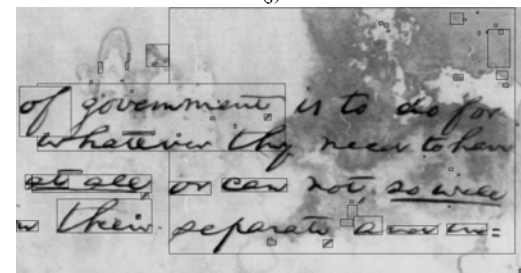 of government is to do for
whatever they need to have
at all or can not, so well
their separate, and in=